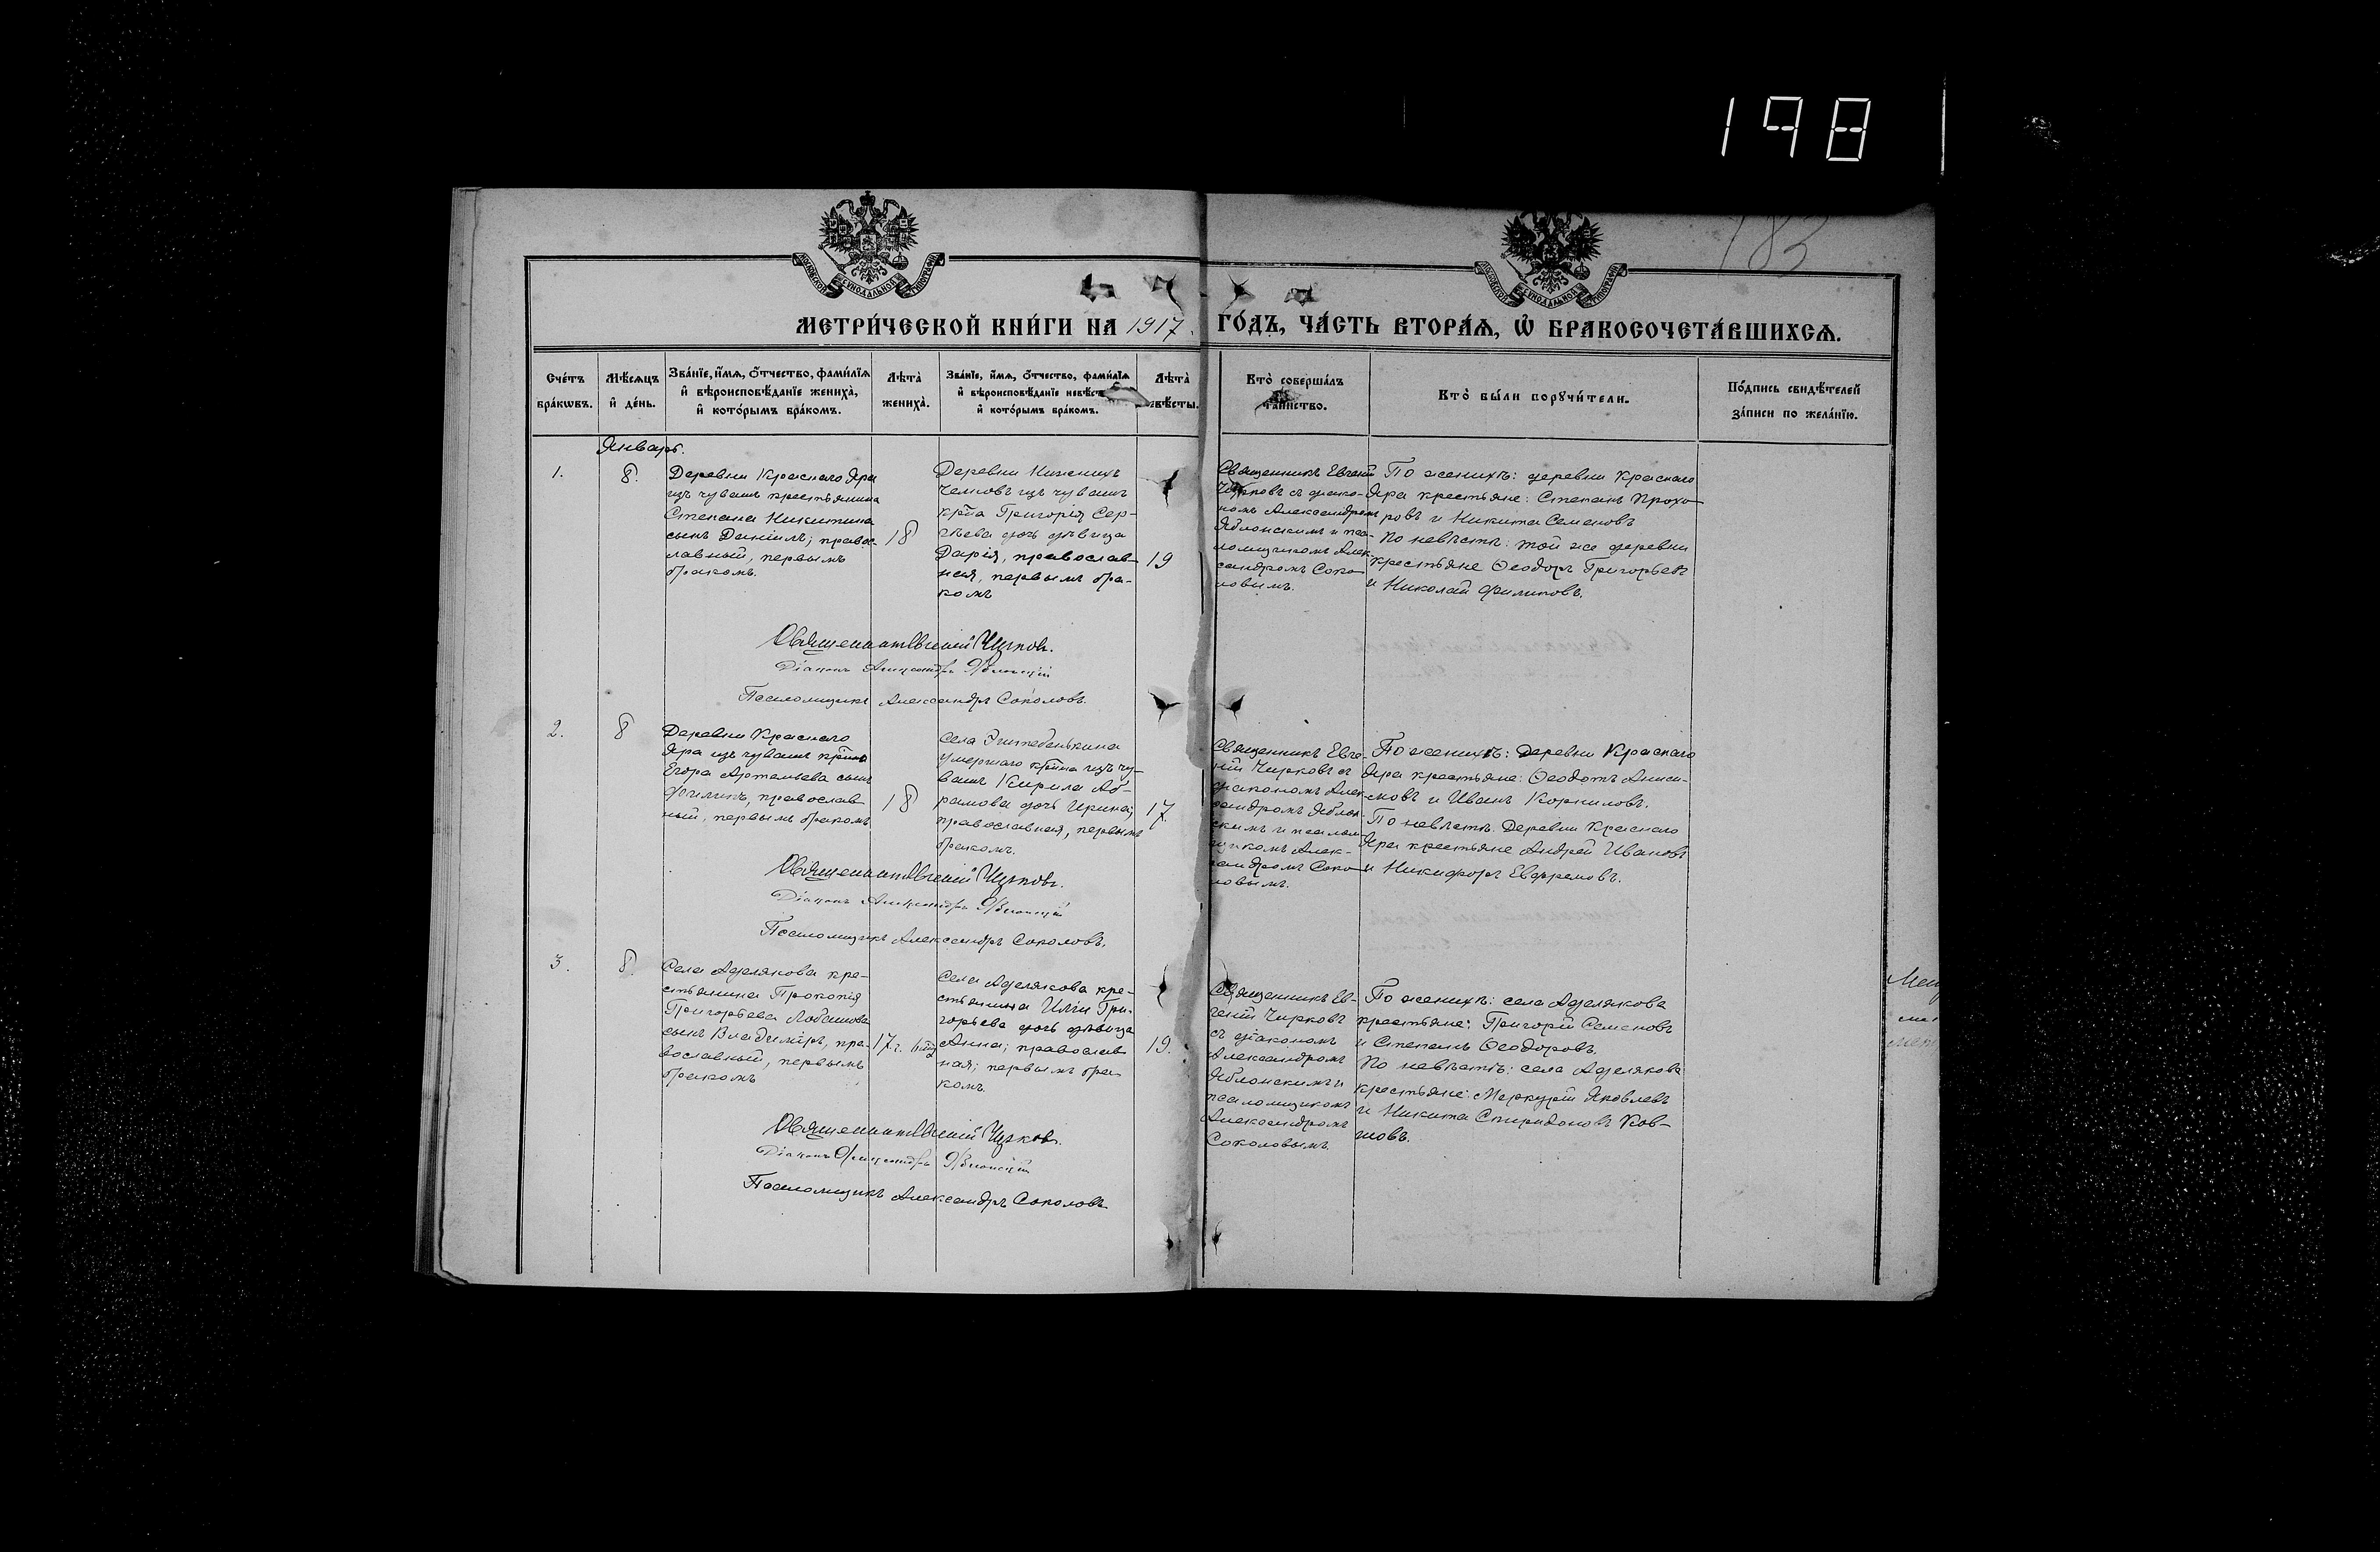 198
183
МОСКОВСКОЙ СѴНОДАЛЬНОЙ ТИПОГРАФІИ
МОСКОВСКОЙ СѴНОДАЛЬНОЙ ТИПОГРАФІИ
МЕТРИ́ЧЕСКОЙ КНИ́ГИ НА 1917. ГО́ДЪ, ЧА́СТЬ ВТОРА́Ѧ, Ѽ БРАКОСОЧЕТА́ВШИХСѦ.
Сче́тъ
бра́кѡвъ.
Мѣ́сѧцъ
и҆ де́нь.
Зва́нїе, и҆́мѧ, о҆́тчество, фами́лїѧ
и҆ вѣроисповѣ́данїе жениха̀,
и҆ кото́рымъ бра́комъ.
Лѣ́та
жениха̀.
Зва́нїе, и҆́мѧ, о҆́тчество, фами́лїѧ
и҆ вѣроисповѣ́данїе невѣ́ст
и҆ кото́рымъ бра́комъ.
Лѣ́та
вѣ́сты.
Кто̀ соверша́лъ
та́инство.
Кто̀ бы́ли порꙋчи́тели.
По́дпись свидѣ́телей
за́писи по жела́нїю.
Январь.
1.
8.
Деревни Краснаго Яра
изъ чувашъ крестьянина
Степана Никитина
сынъ Даніилъ; правос-
лавный, первымъ
бракомъ.
18
Деревни Нижнихъ
Челновъ изъ чувашъ
кр-на Григорія Сер-
гѣева дочь дѣвица
Дарія, православ-
ная, первымъ бра-
комъ
19
Священникъ Евгеній
Чирковъ съ діако-
номъ Александромъ
Яблонскимъ и пса-
ломщикомъ Алек-
сандромъ Соко-
ловымъ.
По женихѣ: деревни Краснаго
Яра крестьяне: Степанъ Прохо-
ровъ и Никита Семеновъ
По невѣстѣ: той же деревни
крестьяне Ѳеодоръ Григорьевъ
и Николай Филиповъ.
Священникъ Евгеній Чирковъ.
Діаконъ Александръ Яблонскій
Псаломщикъ Александръ Соколовъ.
2.
8
Деревни Краснаго
Яра изъ чувашъ кр-на
Егора Артемьева сынъ
Филипъ, православ-
ный, первымъ бракомъ
18
Села
умершаго кр-на изъ чу-
вашъ Кирила Аб-
рамова дочь Ирина;
православная, первымъ
бракомъ.
17
Священникъ Евге-
ній Чирковъ съ
діакономъ Алек-
сандромъ Яблон-
скимъ и псалом-
щикомъ Алек-
сандромъ Соко-
ловымъ.
По женихѣ: Деревни Краснаго
Яра крестьяне: Ѳеодотъ Аниси-
мовъ и Иванъ Корниловъ.
По невѣстѣ. Деревни Краснаго
Яра крестьяне Андрей Ивановъ
и Никифоръ Евфремовъ.
Священникъ Евгеній Чирковъ.
Діаконъ Александръ Яблонскій
Псаломщикъ Александръ Соколовъ.
3.
8.
Села Аделякова кре-
стьянина Прокопія
Григорьева Лобанова
сынъ Владиміръ, пра-
вославный, первымъ
бракомъ
17 г.
Села Аделякова кре-
стьянина Иліи Гри-
горьева дочь дѣвица
Анна; православ-
ная; первымъ бра-
комъ.
19.
Священникъ Ев-
геній Чирковъ
съ діакономъ
Александромъ
Яблонскимъ и
псаломщикомъ
Александромъ
Соколовымъ.
По женихѣ: села Аделякова
крестьяне: Григорій Семеновъ
и Степанъ Ѳеодоровъ.
По невѣстѣ: села Аделякова
крестьяне: Меркурій Яковлевъ
и Никита Спиридоновъ Ков-
шовъ.
Священникъ Евгеній Чирковъ.
Діаконъ Александръ Яблонскій
Псаломщикъ Александръ Соколовъ